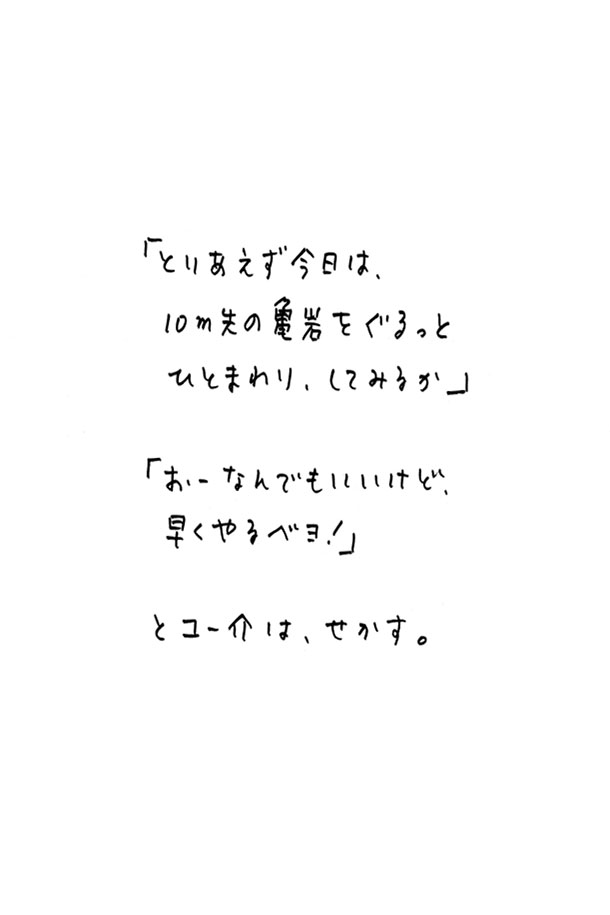 「とりあえず今日は、
10m先の亀岩をぐるっと
ひとまわり、してみるか」
「おーなんでもいいけど、
早くやるベヨ！」
とコー介は、せかす。